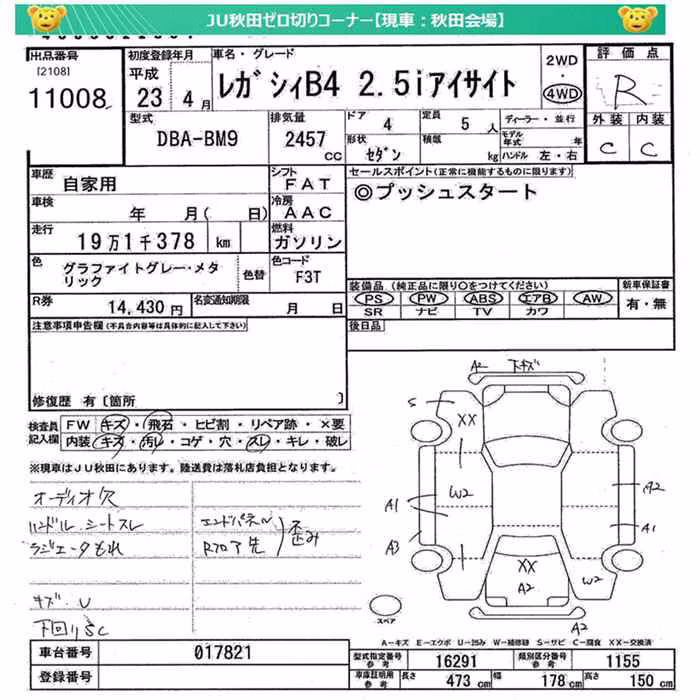 JU秋田ゼロ切りコーナー【現車：秋田会場】
出品番号
[2108]
11008
初度登録年月
平成
23 4月
車名・グレード
レガシィB4 2.5iアイサイト
2WD
・
4WD
評価点
R
型式
DBA-BM9
排気量
2457
CC
ドア
4
定員
5人
形状
セダン
積載
kg
ディーラー・並行
モデル
年式
年
ハンドル 左・右
外装 内装
C C
車歴
自家用
シフト
FAT
車検
年 月( 日)
冷房
AAC
走行
19万1千378 km
燃料
ガソリン
色
グラファイトグレー・メタ
リック
色替
色コード
F3T
R券
14,430円
名変通知期限
月 日
セールスポイント(正常に機能するものに限ります)
◎プッシュスタート
装備品 (純正品に限り○をつけてください)
PS PW ABS エアB AW
SR ナビ TV カワ
新車保証書
有・無
後日品
注意事項申告欄(不具合内容等は具体的に記入して下さい)
修復歴 有〔箇所 〕
検査員
記入欄
FW キズ・飛石・ヒビ割・リペア跡・×要
内装 キズ・汚レ・コゲ・穴・スレ・キレ・破レ
※現車はJU秋田にあります。陸送費は落札店負担となります。
オーディオ欠
ハンドル.シートスレ
ラジエータもれ
エンドパネル
Rフロア先
歪み
キズ.U
下回りSC
A2 下キズ
S
XX
W2
A1
A3
A2
A1
XX
A2
W2
A2
スペア
A-キズ E-エクボ U-凹み W-補修跡 S-サビ C-腐食 XX-交換済
車台番号
017821
登録番号
型式指定番号
参考
16291
類別区分番号
参考
1155
車庫証明用
参考
長さ
473 cm
幅
178 cm
高さ
150 cm